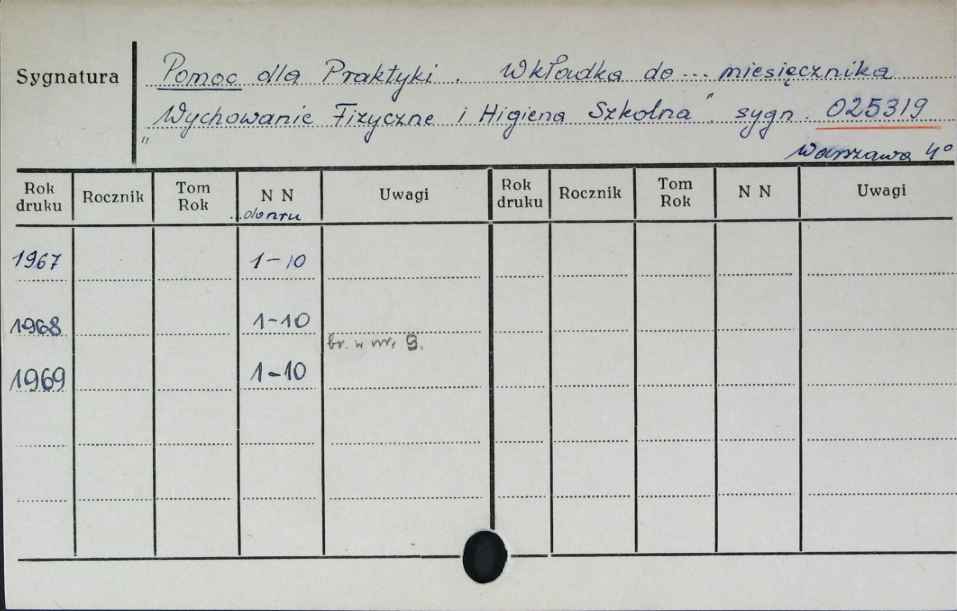 Sygnatura Pomoc dla Praktyki. Wkładka do... miesięcznika
„Wychowanie Fizyczne i Higiena Szkolna". sygn. 025319
Warszawa 4°
Rok druku Rocznik Tom Rok N N do nru Uwagi Rok druku Rocznik Tom Rok N N Uwagi
1967 1-10
1968 1-10
br. w nr. 9.
1969 1-10